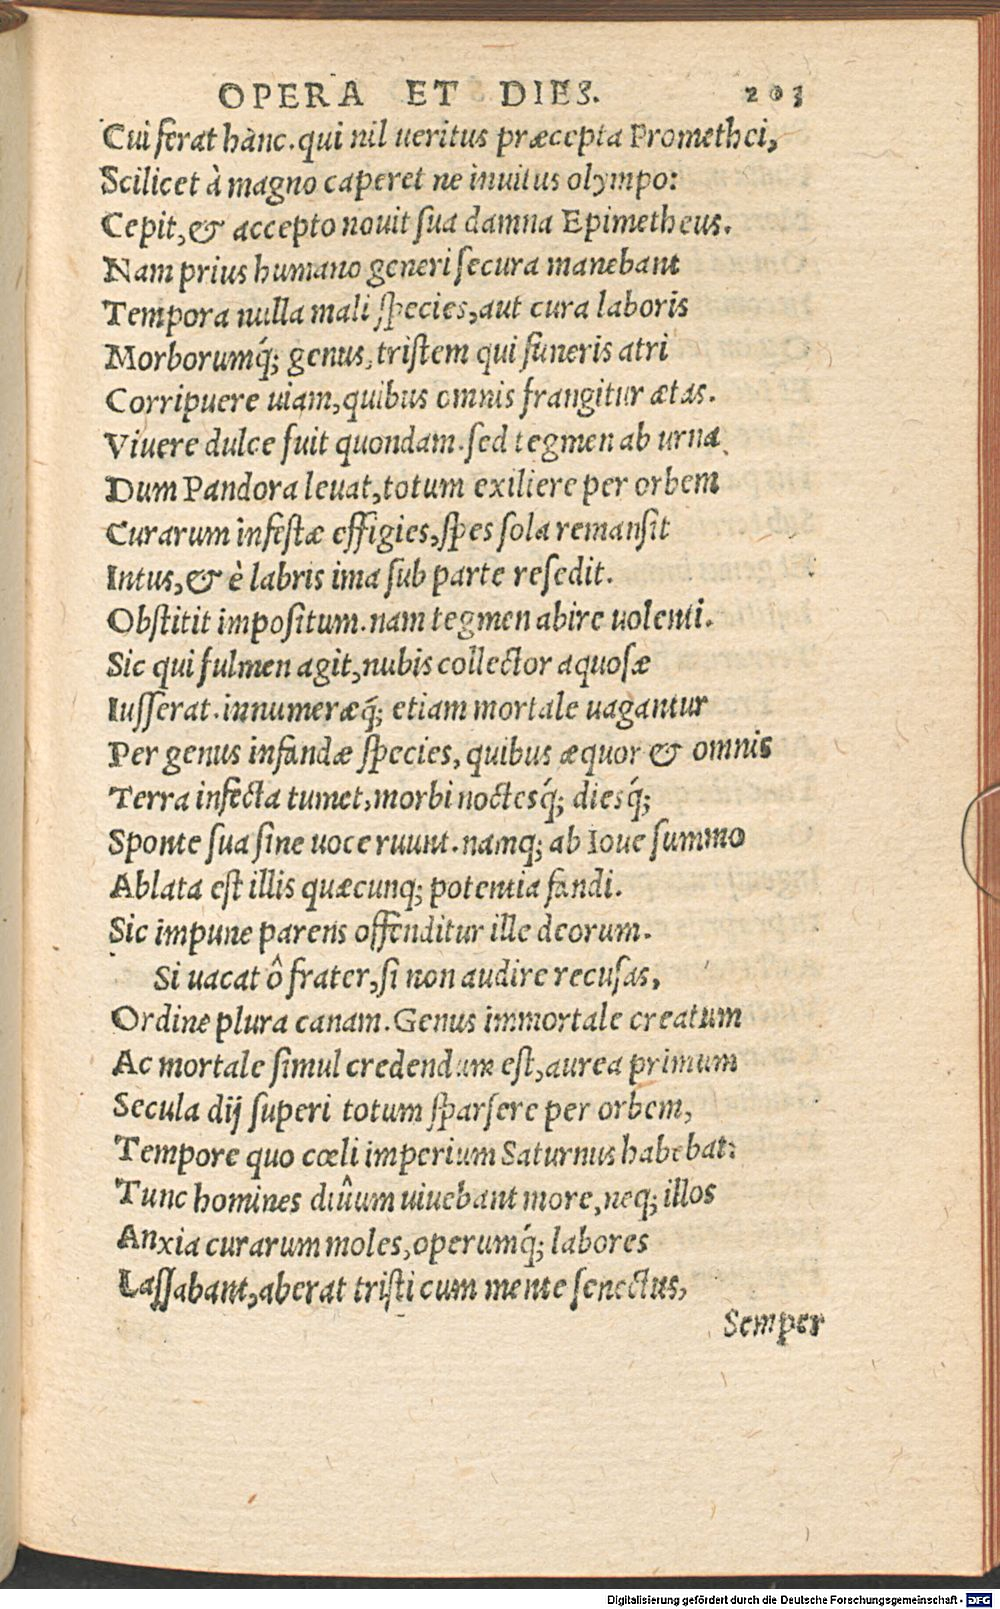 OPERA ET DIES. 203
Cui ferat hànc. qui nil ueritus præcepta Promethei,
Scilicet à magno caperet ne inuitus olympo:
Cepit, & accepto nouit sua damna Epimetheus.
Nam prius humano generi secura manebant
Tempora nulla mali species, aut cura laboris
Morborumq́; genus, tristem qui funeris atri
Corripuere uiam, quibus omnis frangitur ætas.
Viuere dulce fuit quondam. sed tegmen ab urna
Dum Pandora leuat, totum exiliere per orbem
Curarum infestæ effigies, spes sola remansit
Intus, & è labris ima sub parte resedit.
Obstitit impositum. nam tegmen abire uolenti.
Sic qui fulmen agit, nubis collector aquosæ
Iusserat. innumeræq́; etiam mortale uagantur
Per genus infandæ species, quibus æquor & omnis
Terra infecta tumet, morbi noctesq́; diesq́;
Sponte sua sine uoce ruunt. namq; ab Ioue summo
Ablata est illis quæcunq; potentia fandi.
Sic impune parens offenditur ille deorum.
Si uacat ô frater, si non audire recusas,
Ordine plura canam. Genus immortale creatum
Ac mortale simul credendum est, aurea primum
Secula dij superi totum sparsere per orbem,
Tempore quo cœli imperium Saturnus habebat:
Tunc homines diuûum uiuebant more, neq; illos
Anxia curarum moles, operumq́; labores
Lassabant, aberat tristi cum mente senectus,
Semper
Digitalisierung gefördert durch die Deutsche Forschungsgemeinschaft - DFG